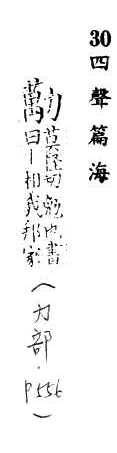 30 四聲篇海
勱 莫怪切勉也書
曰丨相我邦家
(力部.p556)